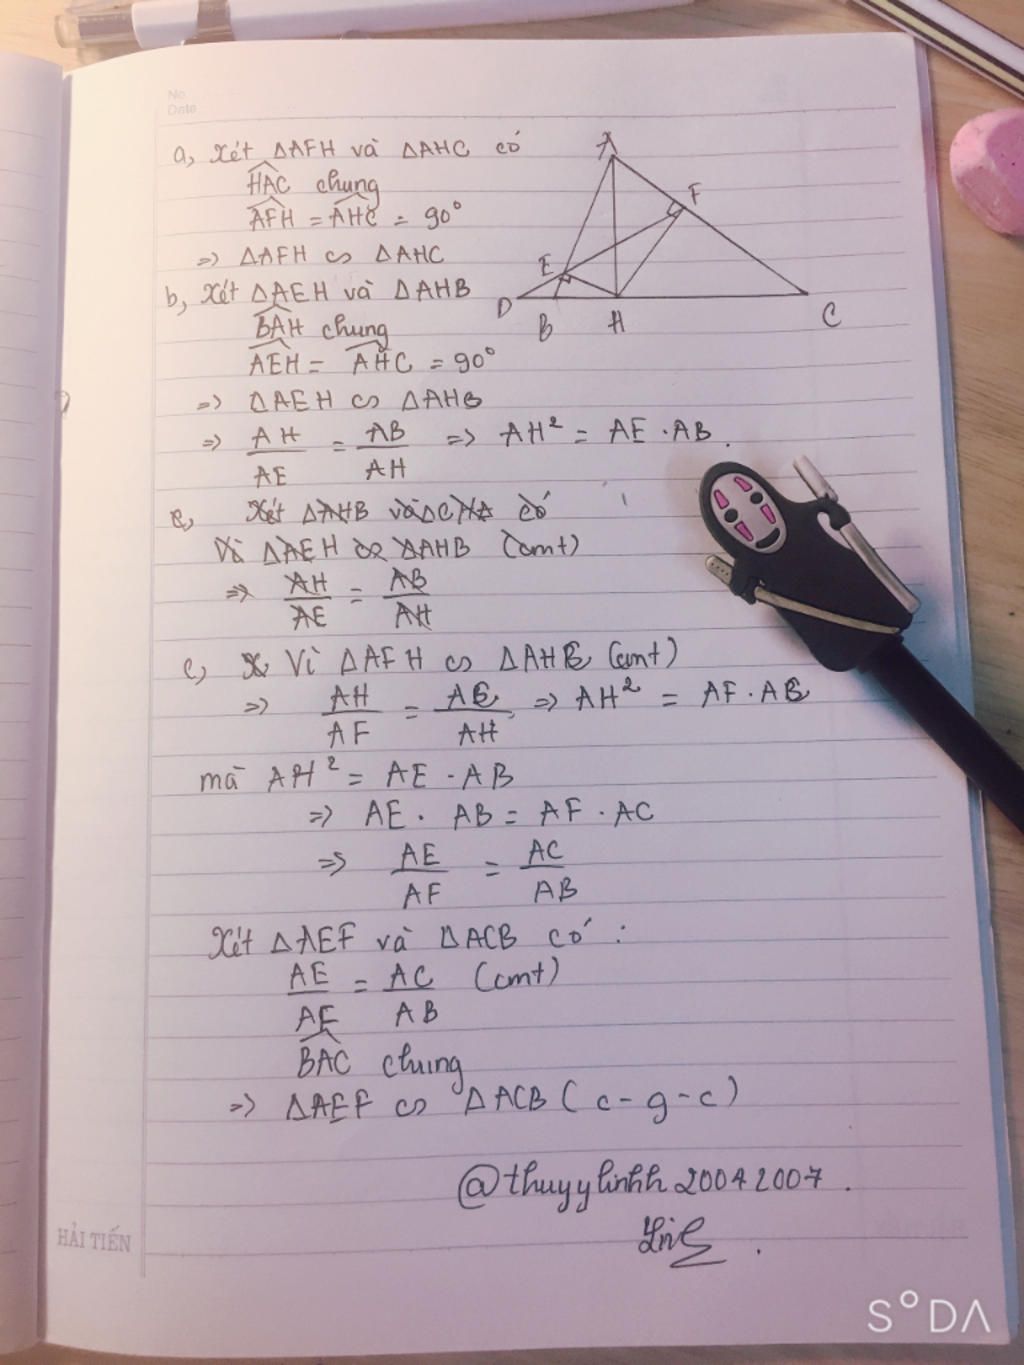 No
Date
a, Xét ΔAFH và ΔAHC có
HAC chung
AFH = AHC = 90°
=> ΔAFH ∽ ΔAHC
b, Xét ΔAEH và ΔAHB
BAH chung
AEH = AHC = 90°
=> ΔAEH ∽ ΔAHB
=> AH/AE = AB/AH => AH² = AE . AB.
A
F
E
D
B
H
C
Xét ΔAHB và ΔCHA có
Vì ΔAEH ∽ ΔAHB (cmt)
=> AH/AE = AB/AH
c, Vì ΔAFH ∽ ΔAHC (cmt)
=> AH/AF = AC/AH => AH² = AF . AC
mà AH² = AE . AB
=> AE . AB = AF . AC
=> AE/AF = AC/AB
Xét ΔAEF và ΔACB có :
AE/AF = AC/AB (cmt)
BAC chung
=> ΔAEF ∽ ΔACB (c-g-c)
@thuyylinhh20042007.
HẢI TIẾN
S°DA